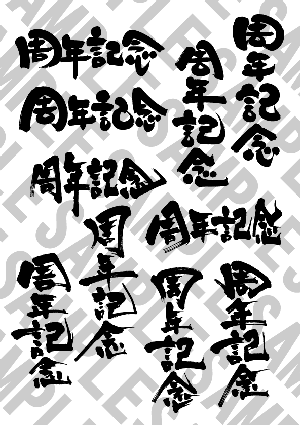 周年記念
周年記念
周年記念
周年記念
周年記念
周年記念
周年記念
周年記念
周年記念
周年記念
SAMPLE SAMPLE SAMPLE